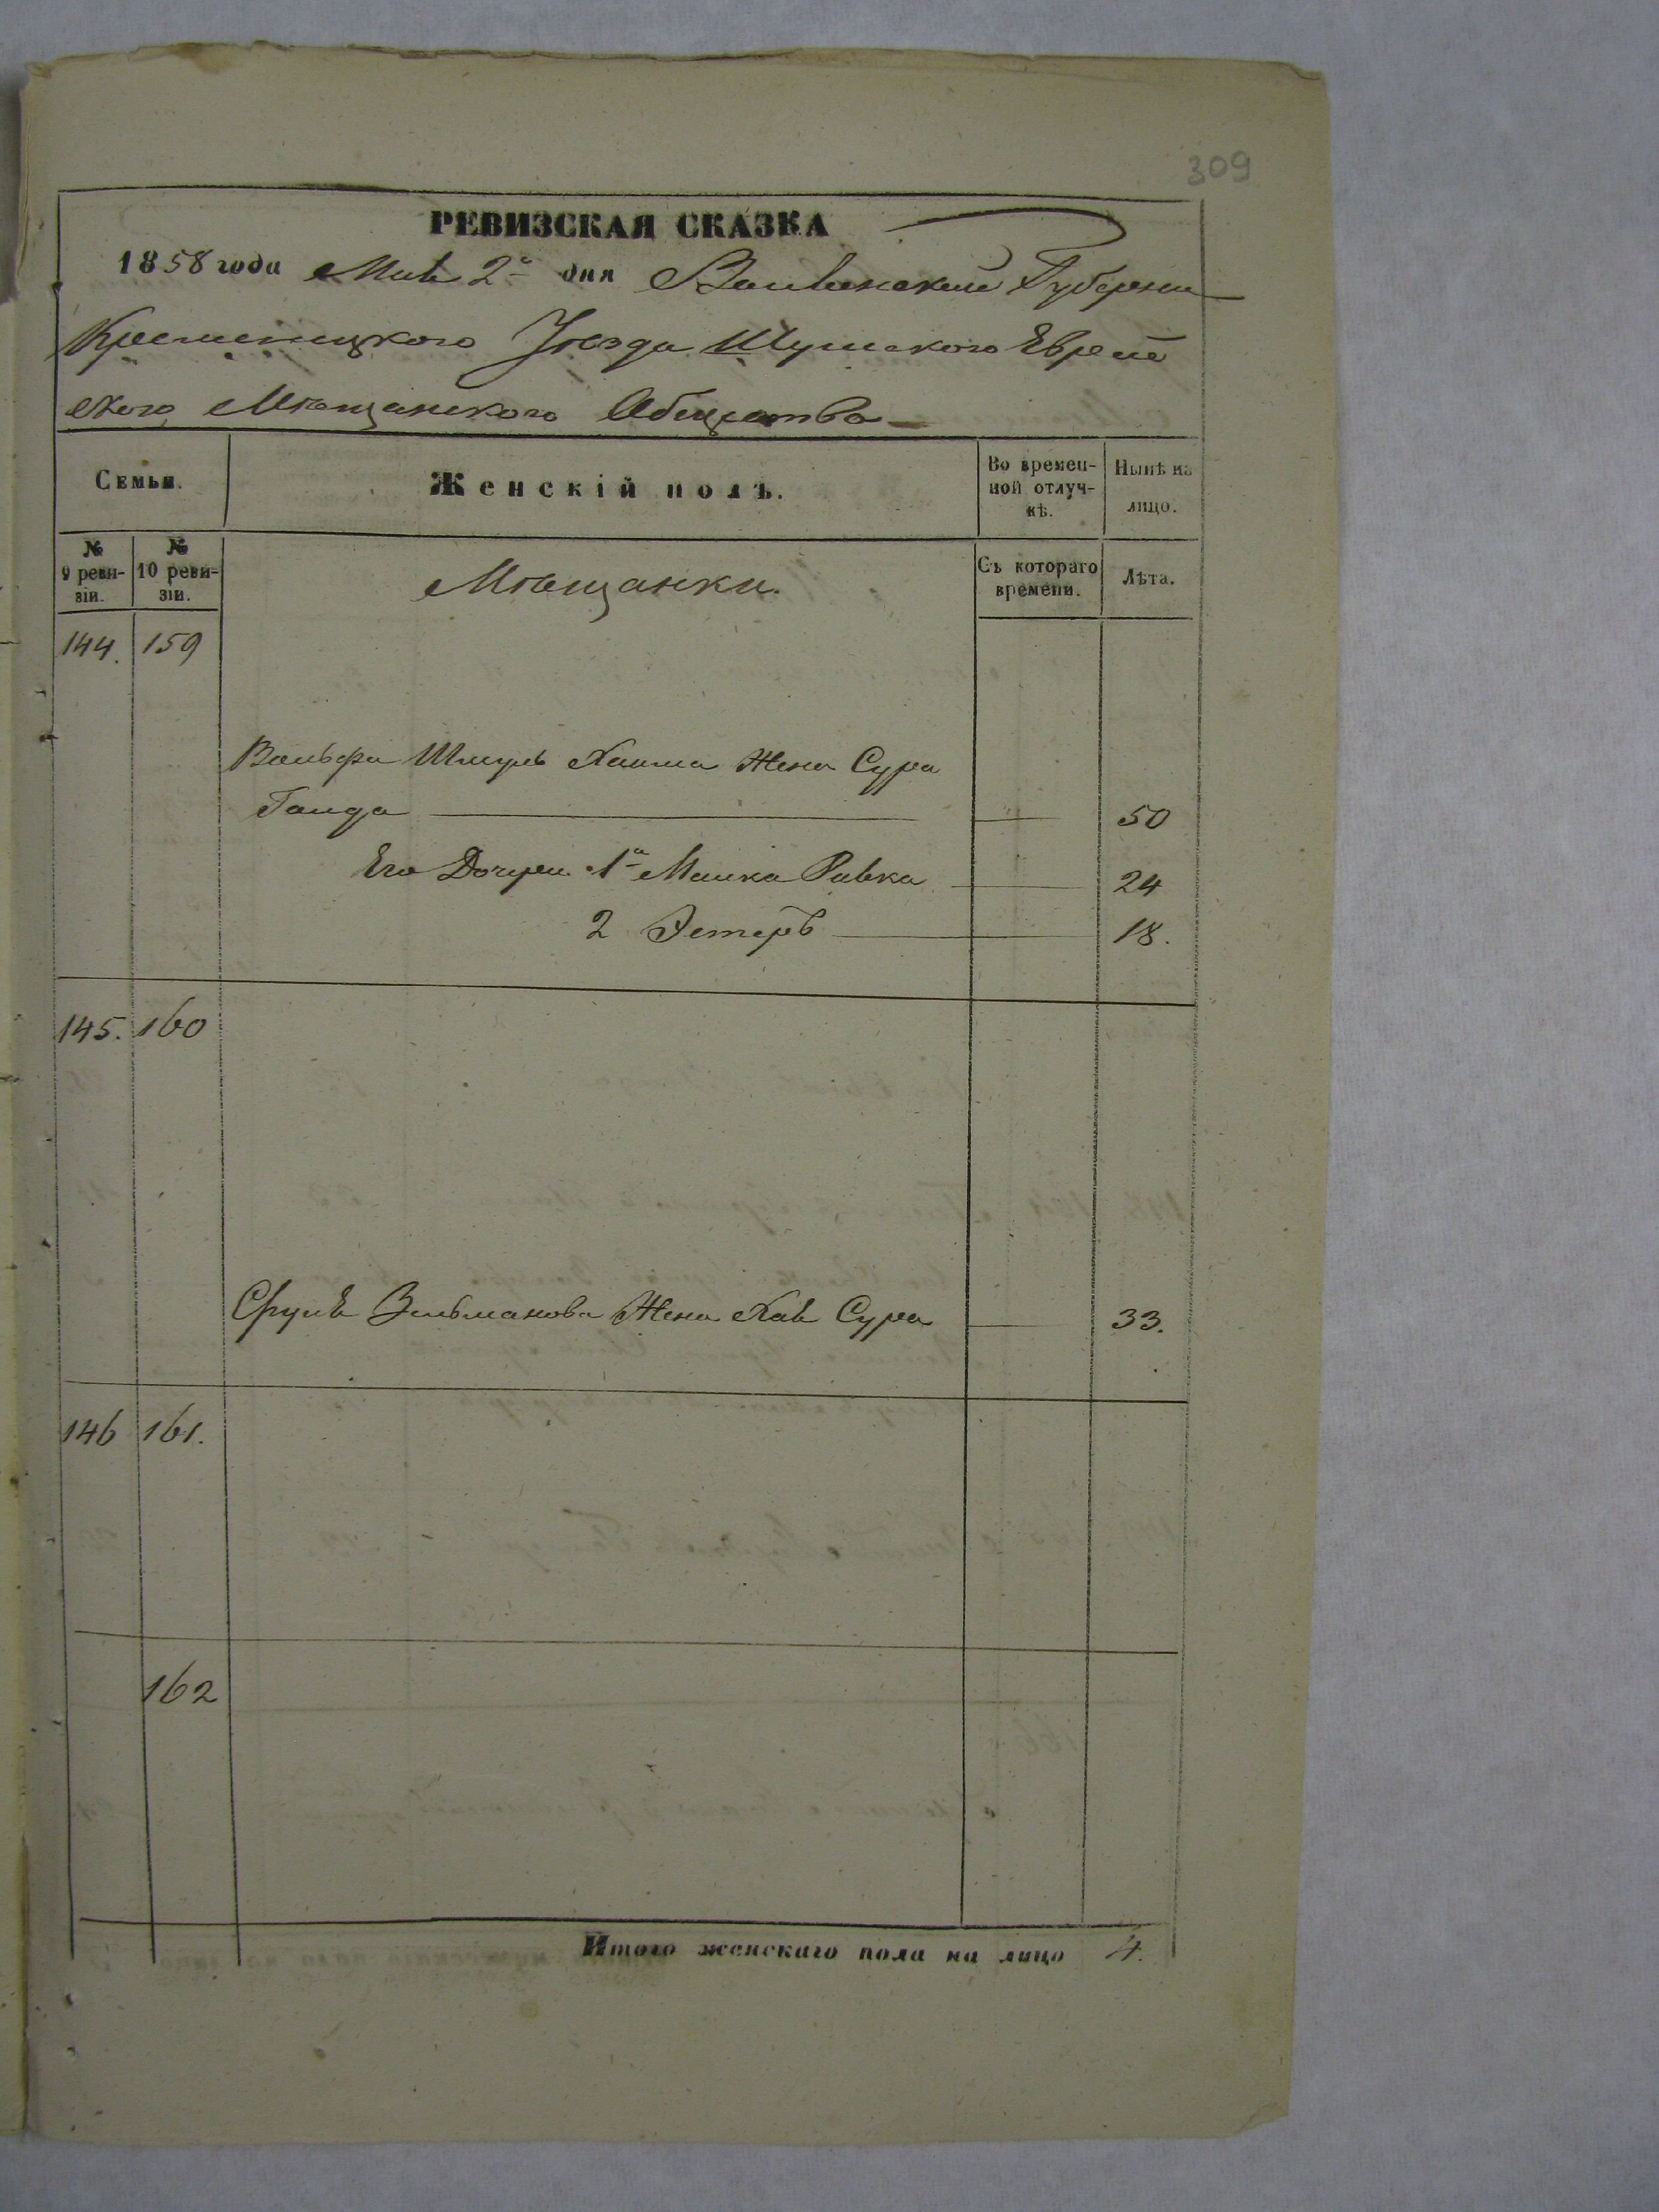 309
РЕВИЗСКАЯ СКАЗКА
1858 года Мая 2го дня Волынской Губернии
Кременецкого Уѣзда Шумского Еврей
ского Мѣщанского Общества
Семьи. Женскій полъ. Во времен-ной отлуч-кѣ. Нынѣ на лицо.
№ 9 реви-зіи. № 10 реви-зіи. Мѣщанки. Съ котораго времени. Лѣта.
144. 159
Вольфа Шмуль Хаима Жена Сура
50
Его Дочери 1я Малка Ривка 24
2 Эстеръ 18.
145. 160
Сруля Зельманова Жена Хая Сура 33.
146 161.
162
Итого женскаго пола на лицо 4.